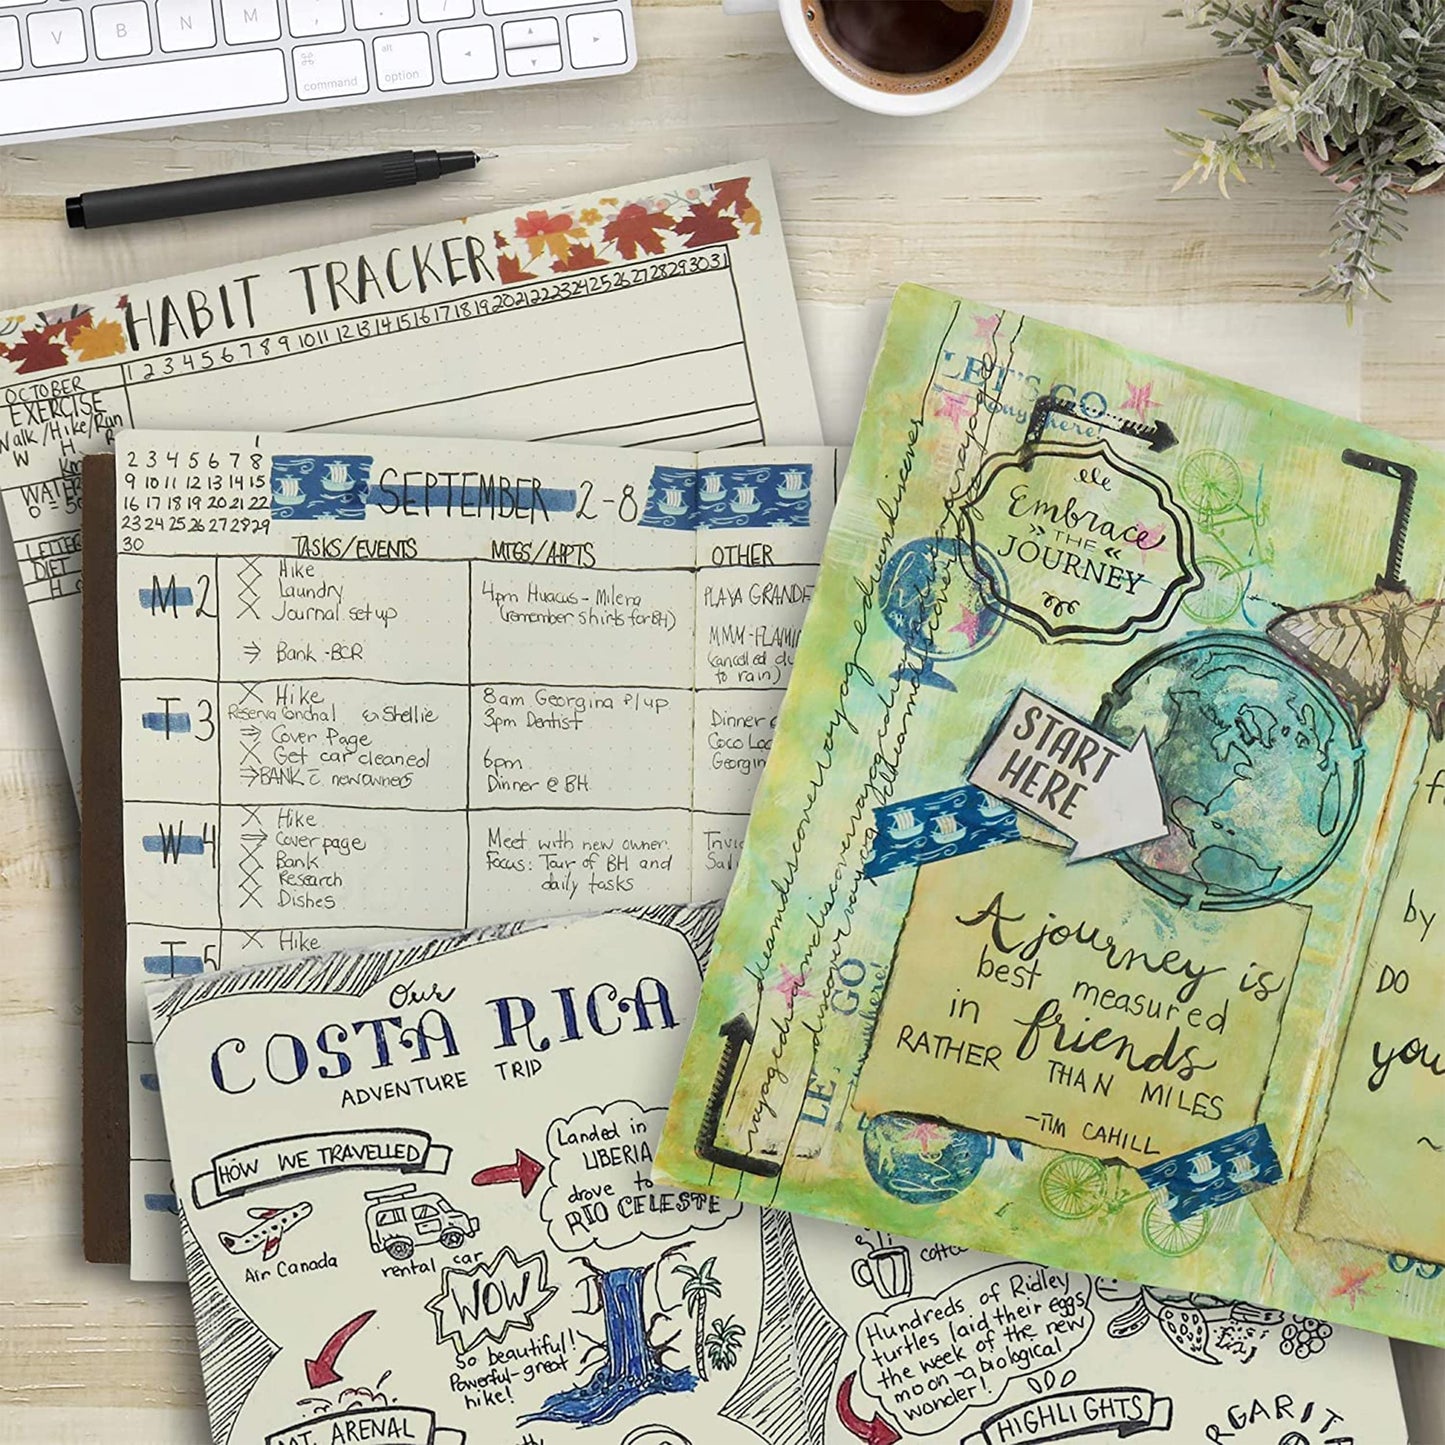 V B N M
command
alt
option
HABIT TRACKER
1 2 3 4 5 6 7 8 9 10 11 12 13 14 15 16 17 18 19 20 21 22 23 24 25 26 27 28 29 30 31
OCTOBER
EXERCISE
Walk/Hike/Run
W H R
Km
WATER
LETTER
DIET
1
2 3 4 5 6 7 8
9 10 11 12 13 14 15
16 17 18 19 20 21 22
23 24 25 26 27 28 29
30
SEPTEMBER 2-8
TASKS/EVENTS MTGS/APPTS OTHER
M 2
X Hike
X Laundry
X Journal set up
⇒ Bank - BCR
4pm Huacus - Milena
(remember shirts for BH)
PLAYA GRANDE
MMM-FLAMI
(cancelled du
to rain)
T 3
X Hike
Reserva Conchal Shellie
⇒ Cover Page
X Get car cleaned
⇒ BANK c̄ new owners
8am Georgina p/up
3pm Dentist
6pm
Dinner @ BH
Dinner
Coco Loc
Georgin
W 4
X Hike
⇒ Cover page
X Bank
X Research
X Dishes
Meet with new owner
Focus: Tour of BH and
daily tasks
Trivi
Sal
T 5
X Hike
Our
COSTA RICA
ADVENTURE TRIP
HOW WE TRAVELLED
Air Canada
rental car
Landed in
LIBERIA
drove to
RIO CELESTE
WOW
So beautiful!
Powerful-great
hike!
MT. ARENAL
Hundreds of Ridley
turtles laid their eggs
the week of the new
moon-a biological
wonder!
HIGHLIGHTS
LET'S GO
anywhere!
Embrace
» THE «
JOURNEY
START
HERE
A journey is
best measured
in friends
RATHER THAN MILES
-TIM CAHILL
by
DO
you
~